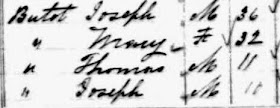 Butot Joseph M 36
" Mary F 32
" Thomas M 11
" Joseph M